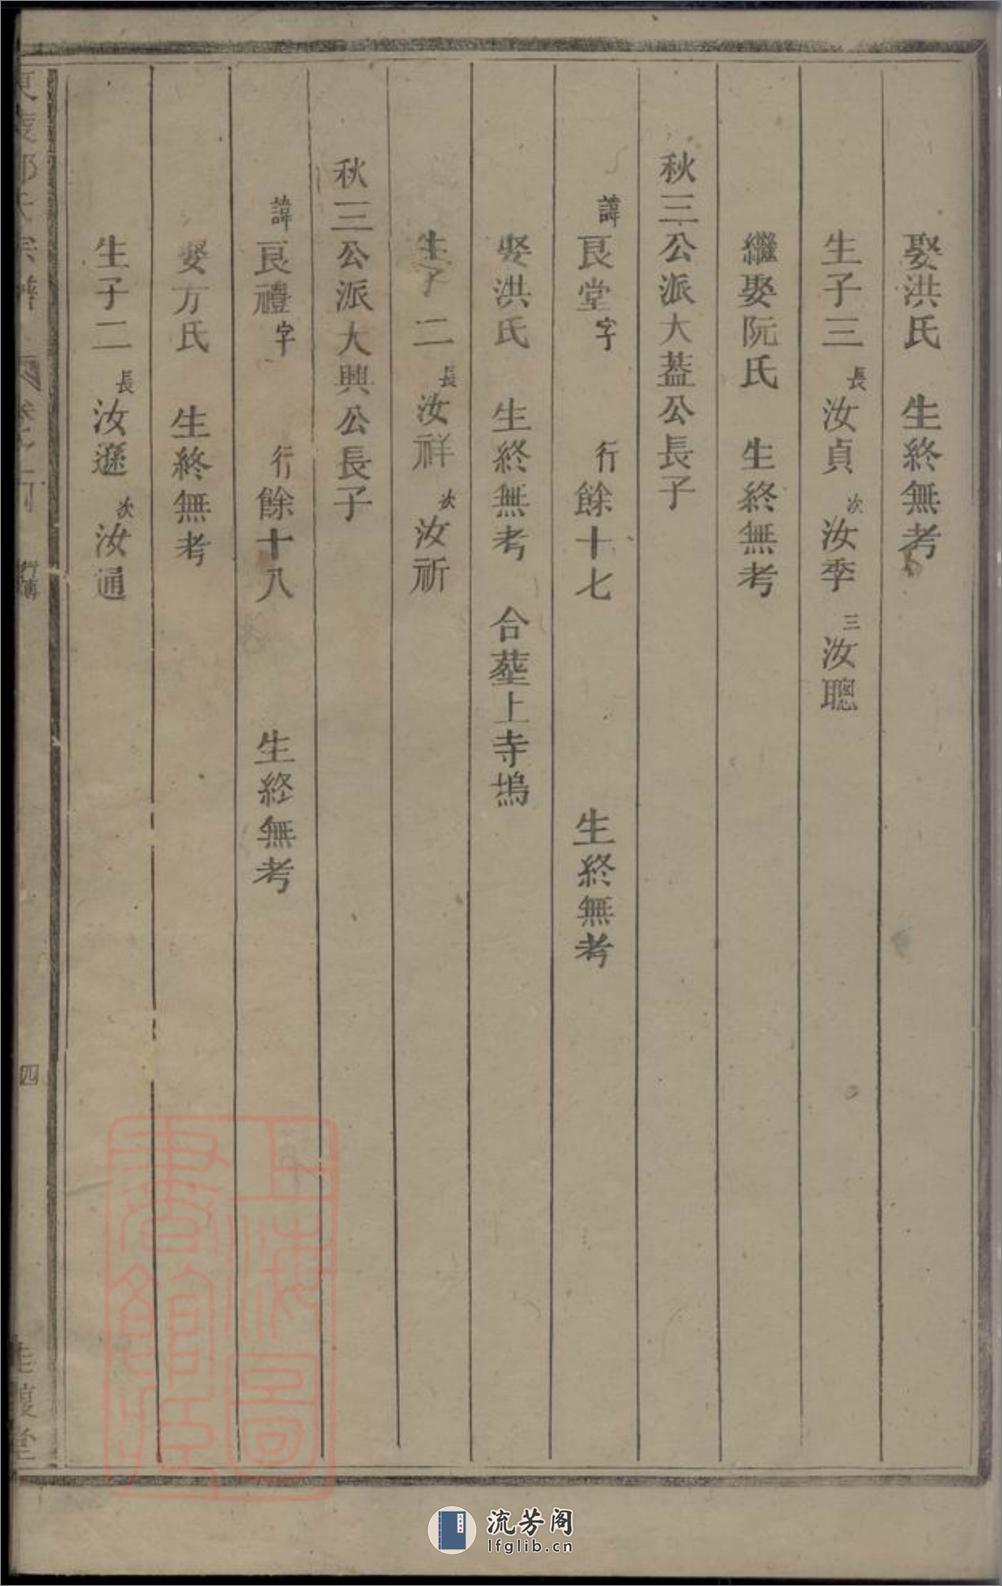 娶洪氏 生終無考
生子三 長汝貞 次汝季 三汝聰
繼娶阮氏 生終無考
秋三公派大葢公長子
諱良堂字 行餘十七 生終無考
娶洪氏 生終無考 合塟上寺塢
生子二 長汝祥 次汝祈
秋三公派大興公長子
諱良禮字 行餘十八 生終無考
娶方氏 生終無考
生子二 長汝遜 次汝通
宗譜
四
上海圖書館藏
流芳阁
lfglib.cn